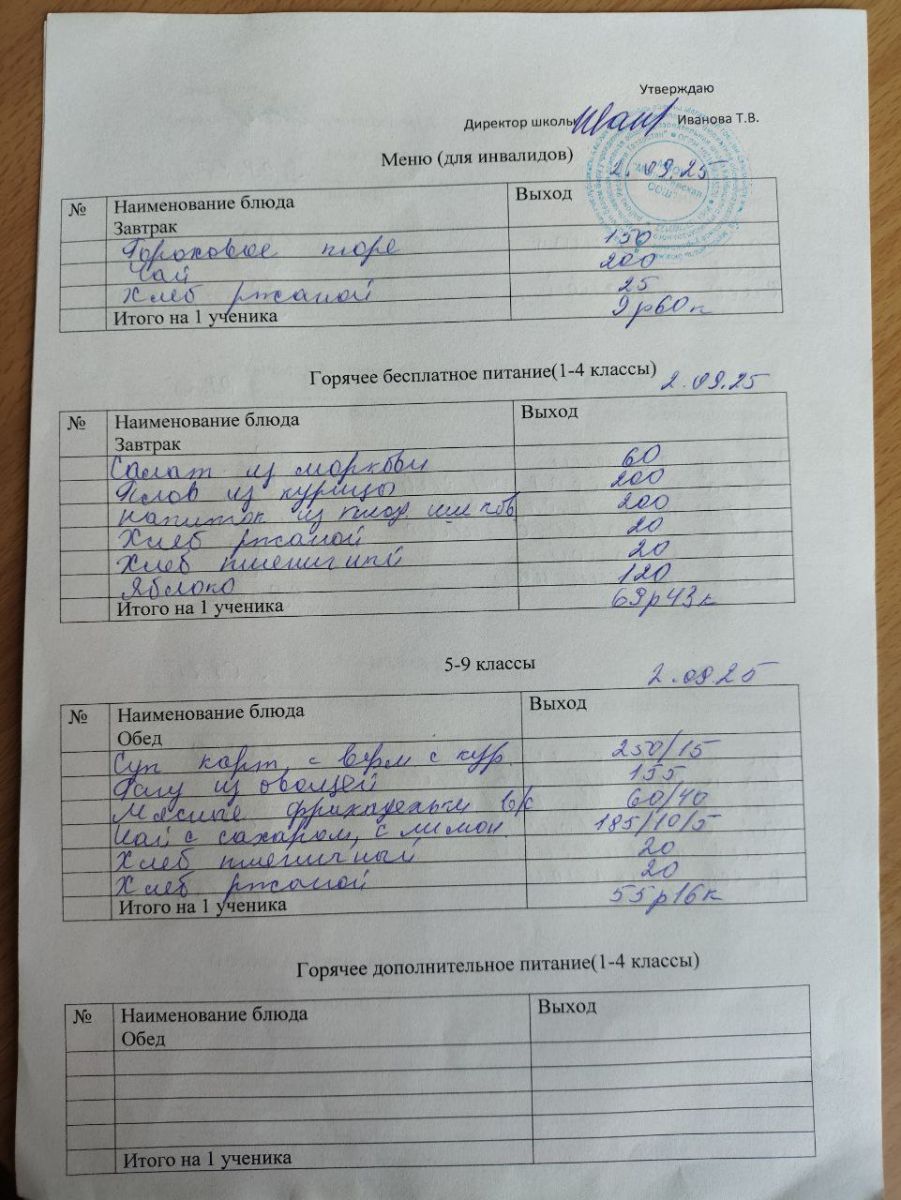 Утверждаю
Директор школы Иванова Т.В.
Меню (для инвалидов) 2.09.25
№ Наименование блюда Выход
Завтрак
Гороховое пюре 150
Чай 200
Хлеб ржаной 25
Итого на 1 ученика 9р60к
Горячее бесплатное питание(1-4 классы) 2.09.25
№ Наименование блюда Выход
Завтрак
Салат из моркови 60
Плов из курицы 200
Напиток из плод шипов 200
Хлеб ржаной 20
Хлеб пшеничный 20
Яблоко 120
Итого на 1 ученика 69р43к
5-9 классы 2.09.25
№ Наименование блюда Выход
Обед
Суп карт с верм с кур. 250/15
Рагу из овощей 155
Мясные фрикадельки в/с 60/40
Чай с сахаром, с лимон. 185/10/5
Хлеб пшеничный 20
Хлеб ржаной 20
Итого на 1 ученика 55р16к
Горячее дополнительное питание(1-4 классы)
№ Наименование блюда Выход
Обед
Итого на 1 ученика